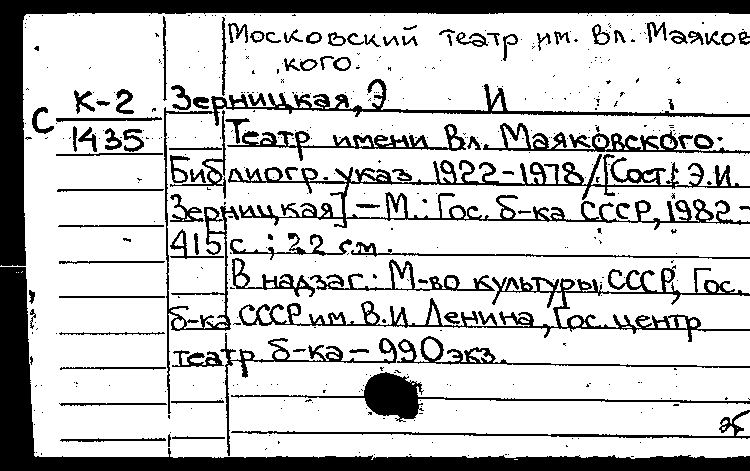 Московский театр им. Вл. Маяков
кого.
К-2 Зерницкая, Э И
С
1435 Театр имени Вл. Маяковского:
Библиогр. указ. 1922-1978/.[Сост.: Э.И.
Зерницкая].—М.: Гос. б-ка СССР, 1982.-
415 с.; 22 см.
В надзаг.: М-во культуры СССР, Гос.
б-ка СССР им. В.И. Ленина, Гос. центр
театр б-ка.— 990 экз.